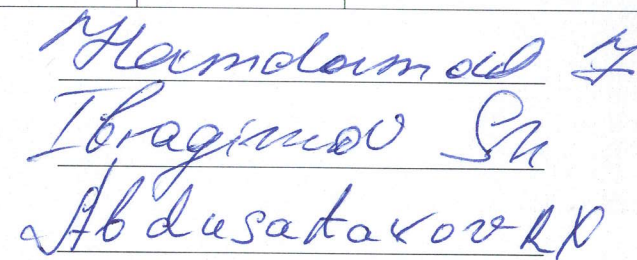 Hamdamov J
Ibragimov Sh
Abdusatarov R X